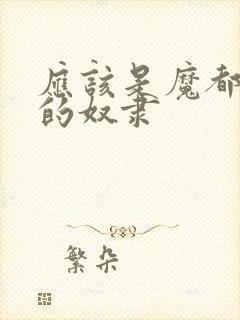 應該是魔都
的奴隶
繁朵